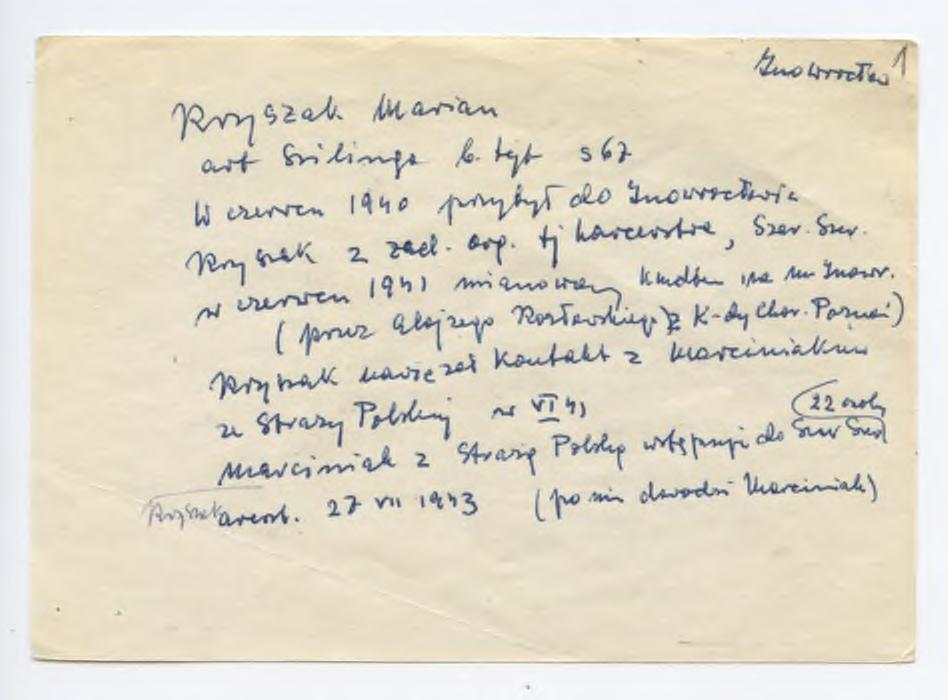 Inowrocław 1
Kryszak Marian
art Szilinga b. tyt s 67
W czerwcu 1940 przybył do Inowrocławia
Kryszak z zad. org. tj harcerstwa, Szar. Szer.
w czerwcu 1941 mianowany kmdtem na m Inowr.
(przez Alojzego Kozłowskiego z K-dy Chor. Poznań)
Kryszak nawiązał kontakt z Marciniakiem
ze Straży Polskiej w VI 41
22 osoby
Marciniak z Strażą Polską wstępuje do Szar Szer
Kryszak areszt. 27 VII 1943 (po nim dowodzi Marciniak)